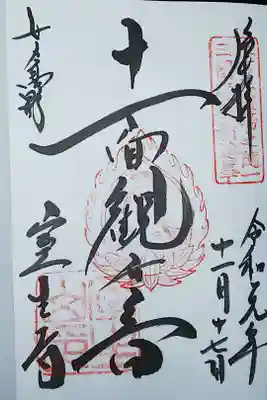 奉拝
令和元年
十一月十七日
十一面観音
女人高野
室生寺